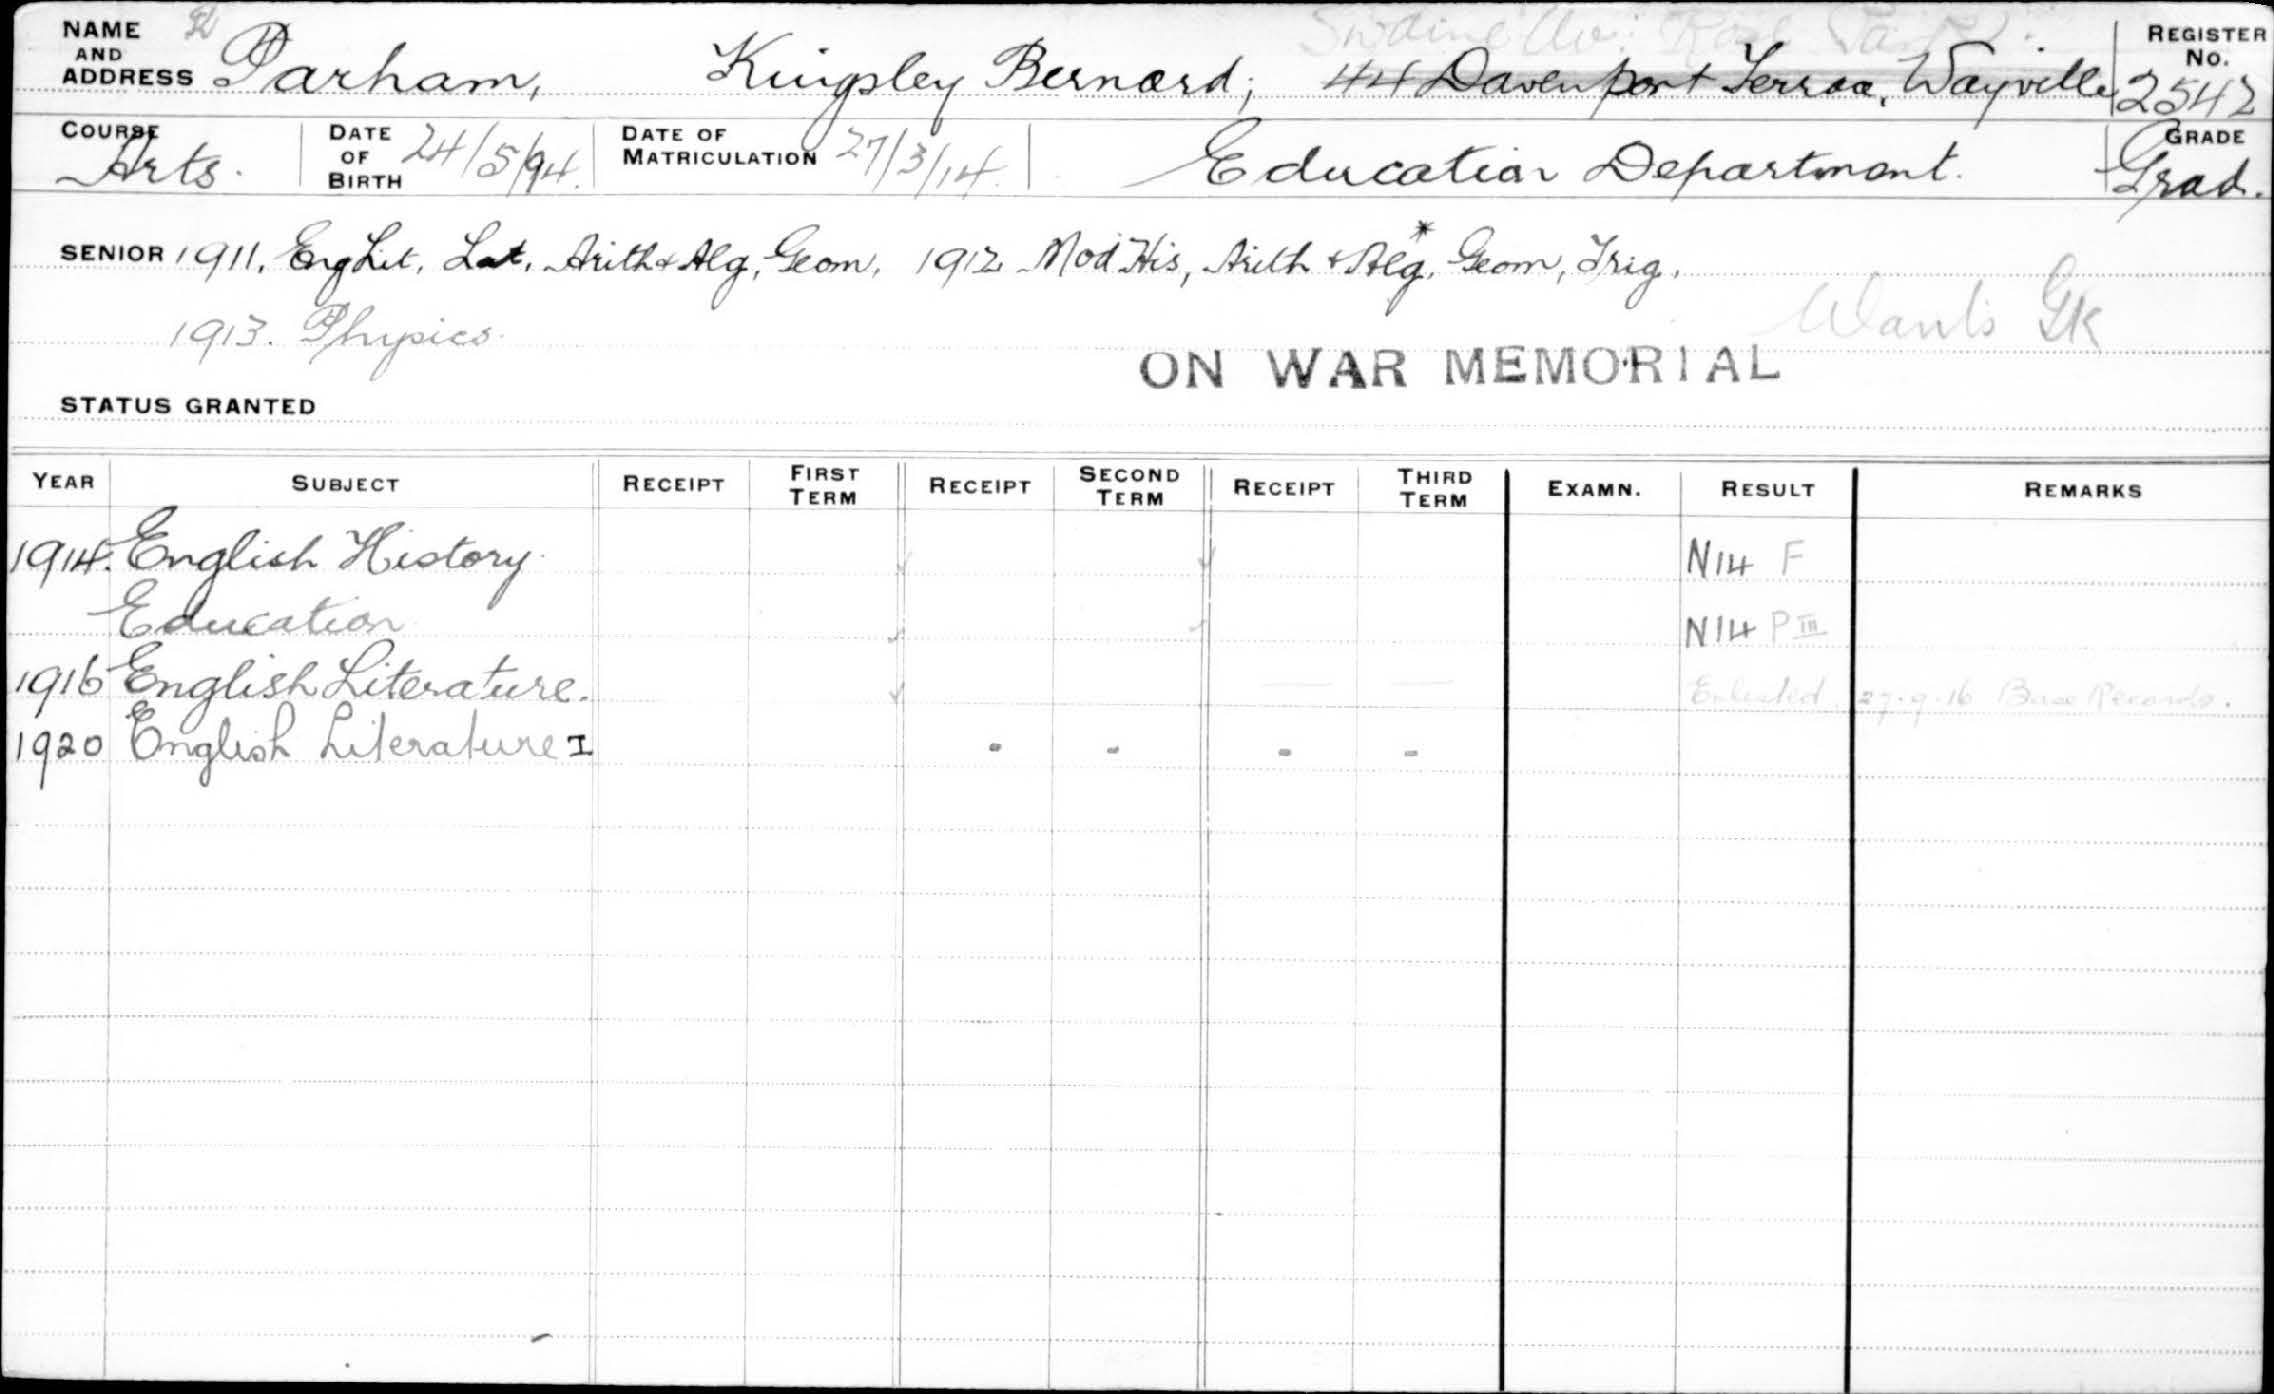 NAME AND ADDRESS Parham, Kingsley Bernard; 44 Davenport Terrace, Wayville REGISTER No. 2542
COURSE Arts. DATE OF BIRTH 24/5/94. DATE OF MATRICULATION 27/3/14. Education Department. GRADE Grad.
SENIOR 1911. Eng Lit, Lat, Arith & Alg, Geom, 1912 Mod His, Arith & Alg*, Geom, Trig,
1913. Physics.
Wants Gk
ON WAR MEMORIAL
STATUS GRANTED
YEAR SUBJECT RECEIPT FIRST TERM RECEIPT SECOND TERM RECEIPT THIRD TERM EXAMN. RESULT REMARKS
1914. English History. N14 F
Education N14 P III
1916 English Literature. Enlisted 27.9.16 Base Records.
1920 English Literature I - - - -